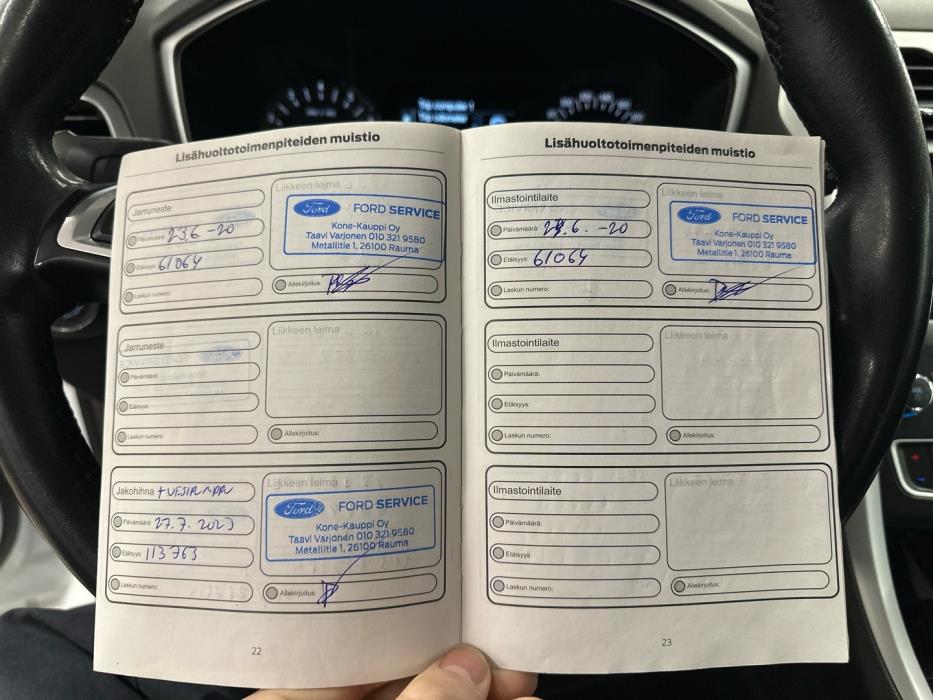 Trip computer 1
Lisähuoltotoimenpiteiden muistio
Jarruneste
Päivämäärä: 23.6 -20
Etäisyys: 61064
Laskun numero:
Liikkeen leima
Ford FORD SERVICE
Kone-Kauppi Oy
Taavi Varjonen 010 321 9580
Metallitie 1, 26100 Rauma
Allekirjoitus:
Jarruneste
Päivämäärä:
Etäisyys:
Laskun numero:
Liikkeen leima
Allekirjoitus:
Jakohihna + VESIPUMPPU
Päivämäärä: 27.7.2023
Etäisyys: 113763
Laskun numero:
Liikkeen leima
Ford FORD SERVICE
Kone-Kauppi Oy
Taavi Varjonen 010 321 9580
Metallitie 1, 26100 Rauma
Allekirjoitus:
22
Lisähuoltotoimenpiteiden muistio
Ilmastointilaite
Päivämäärä: 23.6. -20
Etäisyys: 61064
Laskun numero:
Liikkeen leima
Ford FORD SERVICE
Kone-Kauppi Oy
Taavi Varjonen 010 321 9580
Metallitie 1, 26100 Rauma
Allekirjoitus:
Ilmastointilaite
Päivämäärä:
Etäisyys:
Laskun numero:
Liikkeen leima
Allekirjoitus:
Ilmastointilaite
Päivämäärä:
Etäisyys:
Laskun numero:
Liikkeen leima
Allekirjoitus:
23